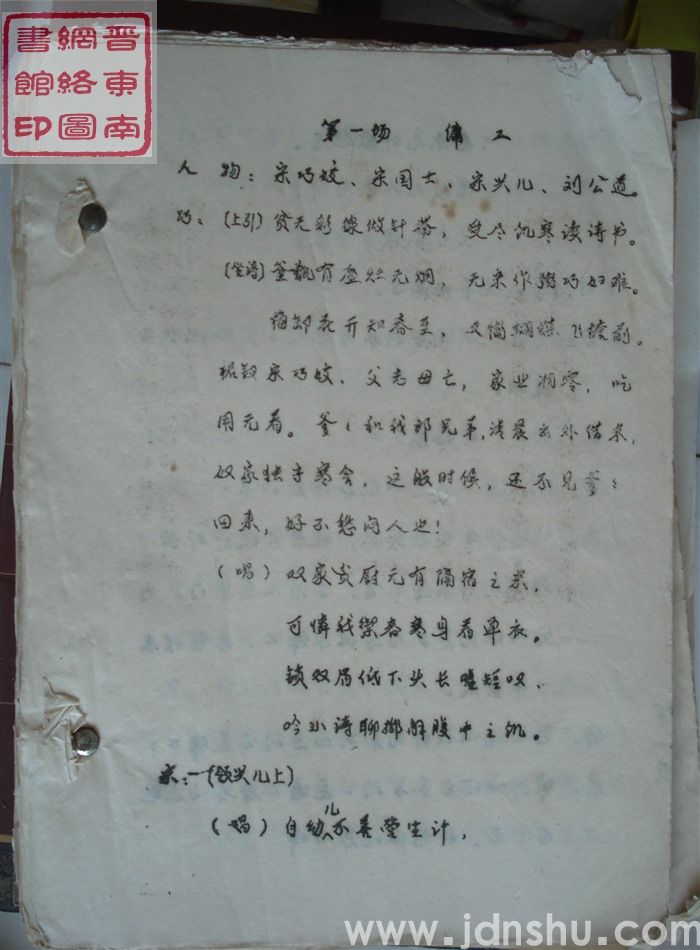 晋东南
網絡圖
書館印
第一场 傭工
人物：宋巧姣、宋国士、宋兴儿、刘公道。
巧：（上引）贫无彩線做针黹，受尽饥寒读诗书。
（坐诗）釜甑有尘灶无烟，无米作粥巧妇难。
梅卸花开知春至，又惱蝴蝶飞牕前。
奴宋巧姣、父老母亡，家业凋零，吃
用无着。爹〻和我那兄弟，清晨去外借米，
奴家独守寒舍，这般时候，还不见爹〻
回来，好不愁闷人也！
（唱）奴家贫厨无有隔宿之米，
可憐我禦春寒身着单衣。
锁双眉低下头长嘘短叹、
吟小诗聊解腹中之饥。
宋：（领兴儿上）
（唱）自幼儿不善营生计，
www.jdnshu.com